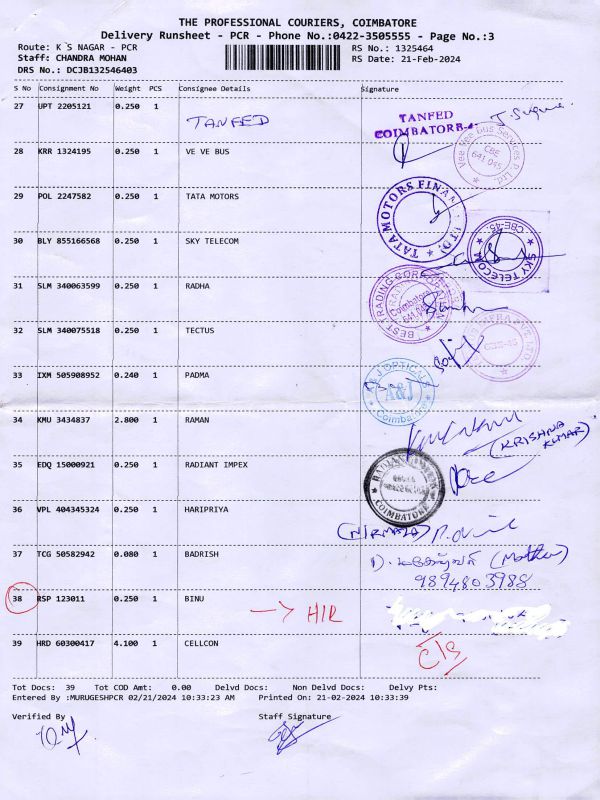 THE PROFESSIONAL COURIERS, COIMBATORE
Delivery Runsheet - PCR - Phone No.:0422-3505555 - Page No.:3
Route: K S NAGAR - PCR RS No.: 1325464
Staff: CHANDRA MOHAN RS Date: 21-Feb-2024
DRS No.: DCJB132546403
S No Consignment No Weight PCS Consignee Details Signature
27 UPT 2205121 0.250 1 TANFED
TANFED
COIMBATORE
28 KRR 1324195 0.250 1 VE VE BUS
Vee Bus Services P Ltd
CBE
641 045
29 POL 2247582 0.250 1 TATA MOTORS
TATA MOTORS FINAN LTD.
30 BLY 855166568 0.250 1 SKY TELECOM
SKY TELECOM CBE-45.
31 SLM 340063599 0.250 1 RADHA
BEST TRADING CORPOR
Coimbatore
641 045
32 SLM 340075518 0.250 1 TECTUS
33 IXM 505908952 0.240 1 PADMA
A&J OPTICALS
A&J
Coimba
34 KMU 3434837 2.800 1 RAMAN
(KRISHNA
KUMAR)
35 EDQ 15000921 0.250 1 RADIANT IMPEX
COIMBATORE
36 VPL 404345324 0.250 1 HARIPRIYA
(NIRMALA)
37 TCG 50582942 0.080 1 BADRISH
(Mother)
9894803988
38 RSP 123011 0.250 1 BINU → HIR
39 HRD 60300417 4.100 1 CELLCON
C/S
Tot Docs: 39 Tot COD Amt: 0.00 Delvd Docs: Non Delvd Docs: Delvy Pts:
Entered By :MURUGESHPCR 02/21/2024 10:33:23 AM Printed On: 21-02-2024 10:33:39
Verified By Staff Signature